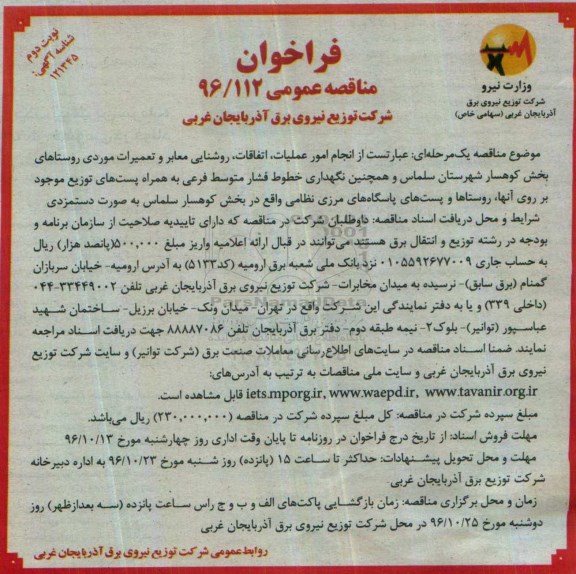 نوبت دوم
شناسه آگهی:
۱۲۱۳۴۵
فراخوان
مناقصه عمومی ۹۶/۱۱۲
شرکت توزیع نیروی برق آذربایجان غربی
وزارت نیرو
شرکت توزیع نیروی برق
آذربایجان غربی (سهامی خاص)
موضوع مناقصه یک‌مرحله‌ای: عبارتست از انجام امور عملیات، اتفاقات، روشنایی معابر و تعمیرات موردی روستاهای
بخش کوهسار شهرستان سلماس و همچنین نگهداری خطوط فشار متوسط فرعی به همراه پست‌های توزیع موجود
بر روی آنها، روستاها و پست‌های پاسگاه‌های مرزی نظامی واقع در بخش کوهسار سلماس به صورت دستمزدی
شرایط و محل دریافت اسناد مناقصه: داوطلبان شرکت در مناقصه که دارای تاییدیه صلاحیت از سازمان برنامه و
بودجه در رشته توزیع و انتقال برق هستند می‌توانند در قبال ارائه اعلامیه واریز مبلغ ۵۰۰,۰۰۰(پانصد هزار) ریال
به حساب جاری ۰۱۰۵۵۹۲۶۷۷۰۰۹ نزد بانک ملی شعبه برق ارومیه (کد۵۱۳۳) به آدرس ارومیه- خیابان سربازان
گمنام (برق سابق)- نرسیده به میدان مخابرات- شرکت توزیع نیروی برق آذربایجان غربی تلفن ۳۳۴۴۹۰۰۲-۰۴۴
(داخلی ۳۳۹) و یا به دفتر نمایندگی این شرکت واقع در تهران- میدان ونک- خیابان برزیل- ساختمان شهید
عباسپور (توانیر)- بلوک۲- نیمه طبقه دوم- دفتر برق آذربایجان تلفن ۸۸۸۸۷۰۸۶ جهت دریافت اسناد مراجعه
نمایند. ضمنا اسناد مناقصه در سایت‌های اطلاع‌رسانی معاملات صنعت برق (شرکت توانیر) و سایت شرکت توزیع
نیروی برق آذربایجان غربی و سایت ملی مناقصات به ترتیب به آدرس‌های:
iets.mporg.ir, www.waepd.ir, www.tavanir.org.ir قابل مشاهده است.
مبلغ سپرده شرکت در مناقصه: کل مبلغ سپرده شرکت در مناقصه (۲۳۰,۰۰۰,۰۰۰) ریال می‌باشد.
مهلت فروش اسناد: از تاریخ درج فراخوان در روزنامه تا پایان وقت اداری روز چهارشنبه مورخ ۹۶/۱۰/۱۳
مهلت و محل تحویل پیشنهادات: حداکثر تا ساعت ۱۵ (پانزده) روز شنبه مورخ ۹۶/۱۰/۲۳ به اداره دبیرخانه
شرکت توزیع برق آذربایجان غربی
زمان و محل برگزاری مناقصه: زمان بازگشایی پاکت‌های الف و ب و ج راس ساعت پانزده (سه بعدازظهر) روز
دوشنبه مورخ ۹۶/۱۰/۲۵ در محل شرکت توزیع نیروی برق آذربایجان غربی
روابط عمومی شرکت توزیع نیروی برق آذربایجان غربی